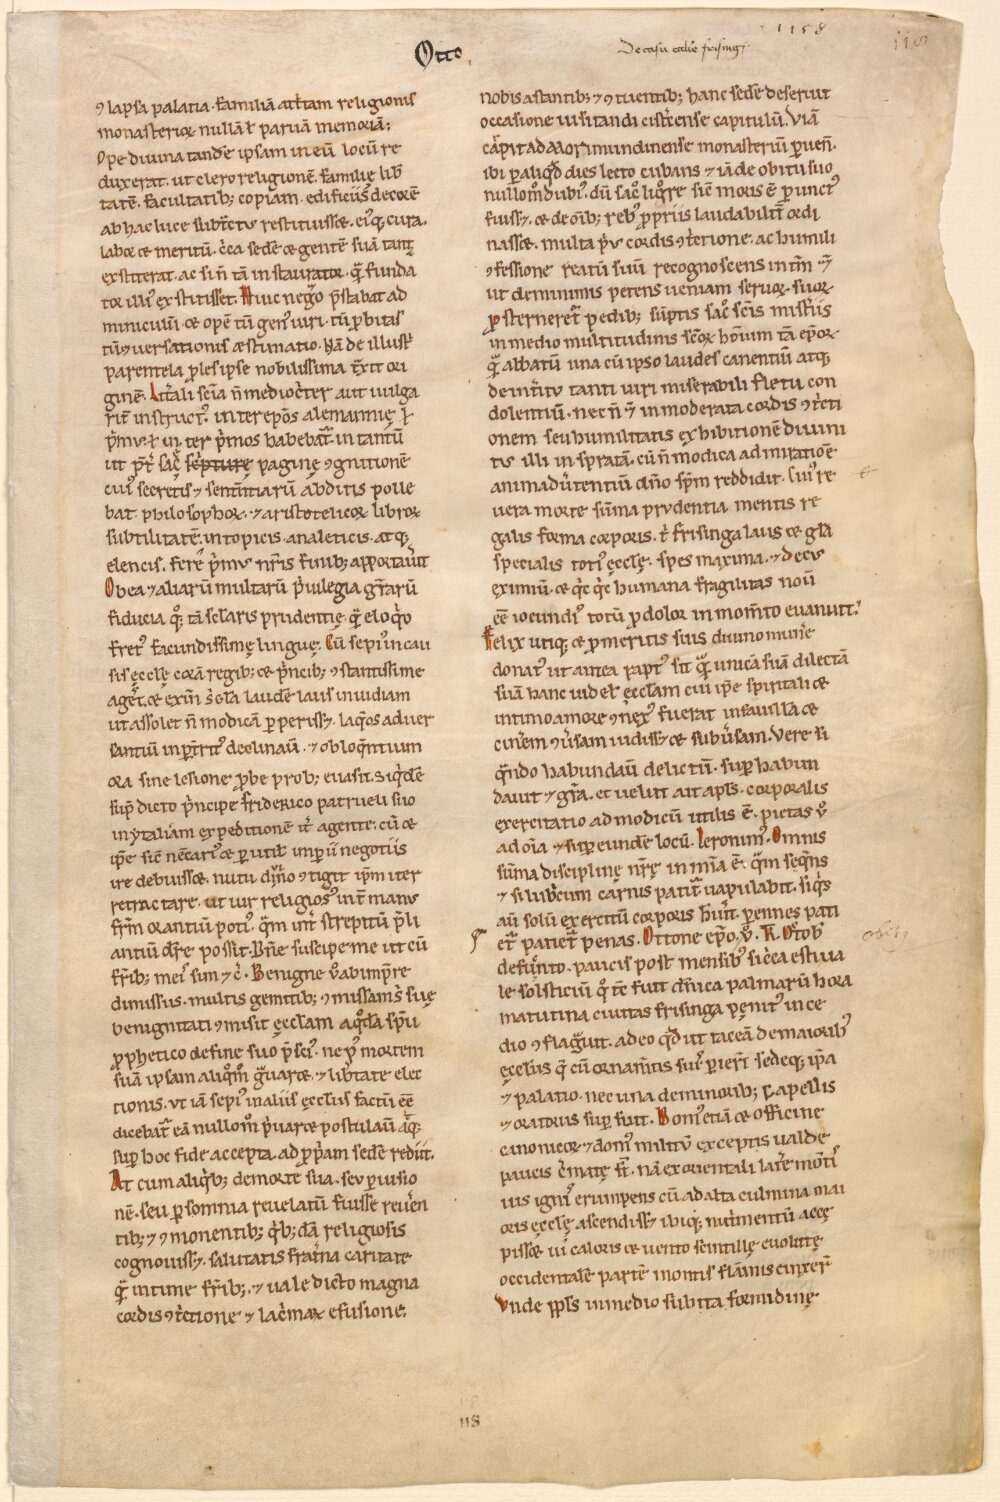 Otto
De casu ecclie frising
1158
118
ꝯlapsa palatia. familiā attͥtam religionis
monasteriorꝝ nullā ł paruā memoriā;
Ope diuina tandē ipsam in eū locū re
duxerat. ut clero religionē. familię lib͛
tatē. facultatib; copiam. edificiis decorē
ab hac luce subtͣct' restituisset. eiꝰq; cura.
labor et meritū. cͥca sedē et gentē suā tantū
exstiterat. ac si n̄ tā instaurator. qͣ̄ funda
tor illiꝰ exstitisset. Huic nego p̄stabat ad
miniculū. et opē tū genꝰ uiri. tū probitas
tū ꝯuersationis æstimatio. Nā de illustͥ
parentela proles ipse nobilissima tͣxit ori
ginē. Littͣali sciā n̄ mediocͥter aut uulga
rit̄ instructꝰ. inter epōs alemannię ł
pͥmꝰ ł inter pͥmos habebat͛. in tantū
ut pͣt͛ sacͤ scͥpturę paginę ꝯgnitionē
cuiꝰ secretis ⁊ sententiarū abditis polle
bat. philosophoꝝ. ⁊ aristotelicoꝝ librorꝝ
subtilitatē. in topicis. analeticis. atq;
elencis. fere pͥmꝰ nr̄is finib; apportau͛it
Ob ea ⁊ aliarū multarū pͥuilegia gr̄arū
fiducia qͦq; tā sclaris prudentię. qͣ̄ eloqͥo
fretꝰ facundissimę linguę. Cū sepiꝰ in cau
sis ęcclę coram regib; et pͥncib; ꝯstantissime
aget͛. et exin̄ s͛ gl̄a laudē laus inuidiam
ut assolet n̄ modicā pꝑerisset. laqͦs aduer
santiū in ꝑtͣritꝰ declinauͥ. ⁊ obloqͣntium
ora sine lesione probe prob; euasit. Siqͥdē
supͣ dicto pͥncipe friderico patrueli suo
in ytaliam expeditionē itͣ agente. cū et
ip̄e siē nec̄ariꝰ et ꝑ utilis imperii negotiis
ire debuisset. nutu diuino ꝯtigit ip̄m iter
retractare. ut uir religiosꝰ int͛ manꝰ
frm̄ orantiū potiꝰ. qͣ̄m int͛ strepitū pͤli
antiū dͥre possit. Bn̄e suscipe me ut cū
frīb; meiꝰ sim ⁊c͛. Benigne ͣ ab impͬre
dimissus. multis gemitib; ꝯmissam s͛ suę
benignitati ꝯmisit ęcclam a qͦdā sp̄u
prophetico de fine suo pͤsciꝰ. ne pͥ mortem
suā ipsam aliqͦm̄ gͣuaret. ⁊ lib͛tate elec
tionis. ut iā sepiꝰ in aliis ęcclis factū eē
dicebat͛. eā nullom̄ pͥuaret postulauͥ atq;
suꝑ hoc fide accepta. ad propͥam sedē rediit.
At cum aliqͥb; de morte sua. seu ꝑ uisio
nē. seu ꝑ somnia reuelatū fuisse reuͣen
tib; ⁊ ꝯmonentib; qͥb;dā religiosis
cognouisset. salutatis frat͛na caritate
qͣ̄ intime frīb;. ⁊ uale dicto magna
cordis ꝯtͥtione ⁊ lacͥmarꝝ efusione.
nobis astantib; ⁊ ꝯtuentib; hanc sedē deseruit
occasione uisitandi cisterͨense capitulū. Viā
cāpit ad Morimundinense monasteriū ꝑuen̄.
ibi ꝑ aliqͦd dies lecto cubans ⁊ iā de obitu suo
nullom̄ dubiꝰ. dū sacͦ liqͦre siē moris ē ꝑunctꝰ
fuisset. et de oīb; rebꝰ propriis laudabilit̄ ordi
nasset. multa pͥꝰ cordis ꝯtͥtione. ac humili
ꝯfessione reatū suū recognoscens intm̄ ⁊
ut de minimis petens ueniam seruorꝝ suorꝝ
prosterneret͛ pedib; sūptis sacͦ scīs mist͛iis
in medio multitudinis sc̄orꝝ hoīum tā ep̄orꝝ
qͣ̄ abbatū una cū ipso laudes canentiū atq;
de int͛itꝰ tanti uiri miserabili fletu con
dolentiū. nec n̄ ⁊ in moderata cordis ꝯtͥti
onem seu humilitatis exhibitionē diuini
tꝰ illi inspͥratā. cū n̄ modica admiratiōe
animaduͥtentiū. dn̄o sp̄m reddidit. Cuiꝰ re
uera morte sūma prudentia mentis re
galis forma corporis. tͥ frisinga laus et gl̄a
specialis totiꝰ ęcclę. spes maxima. ⁊ decꝰ
eximiū. et qͥcqͥd humana fragilitas nouͥ
eē iocundiꝰ totū prodolor in momto euanuit.
Felix utiq; et ꝑ meritis suis diuino mun͛e
donatꝰ ut antea raptꝰ sit. qͣ̄ unicā suā dilectā
suā hanc uidel͛ ęcclam cui ip̄e spiritali et
intimo amore ꝯnexꝰ fuerat. in fauillā et
cin͛em ꝯuͥsam uidisset et subuͥsam. Vere si
qͣndo habundauͥ delictū. suꝑ habun
dauit ⁊ gr̄a. et uelut ait apl̄s. corporalis
exercitatio ad modicū utilis ē. pietas ͣ
ad oīa. ⁊ suꝑ eundē locū. Ieronimꝰ. Omnis
sūma disciplinę nr̄ę in mīa ē. qͣm seqͣns
⁊ si lubͥcum carnis patit͛ uapulabit. siqͥs
aū solū exercitiū corporis hu͛it. ꝑennes pati
et͛ patiet͛ penas. Ottone ep̄o. v. K. Octobͥ
defūncto. paucis post mensibꝰ siccā estiua
le solsticiū qͦ tē fuit dn̄ica palmarū hora
matutina ciuitas frisinga ꝑenitꝰ in ce
dio ꝯflagͣuit. adeo qͦd ut taceā de maioribꝰ
ęcclis qͣ cū ornam̄tis suiꝰ ꝑierūt sedeq; ip̄a
⁊ palatio. nec una de minorib; capellis
⁊ oratoriis suꝑfuit. Domꝰ etiā et officine
canonicorꝝ ⁊ domꝰ militū exceptis ualde
paucis cͥmatę st̄. nā ex orientali lat͛e mōti
uis igniꝰ erumpens cū ad alta culmina mai
oris ęcclę ascendisset. ibiq; nut͛mentū accę
pisset. ui caloris et uento scintillę euolutę
occidentalē partē montis flāmis cinxer̄
Vnde ppl̄s in medio subita formidinę
obitꝰ
118